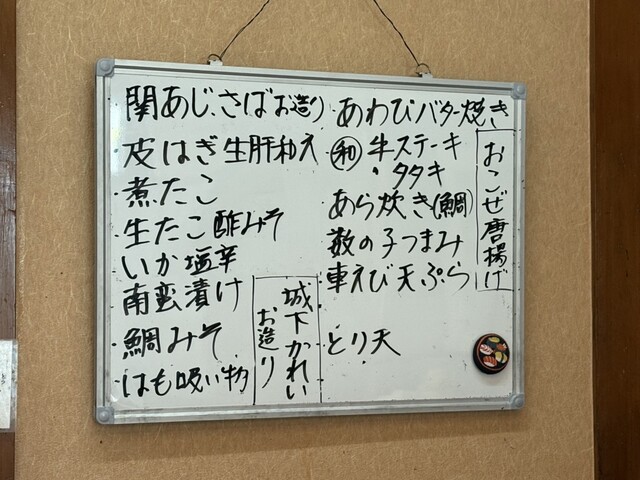 関あじ、さばお造り
皮はぎ生肝和え
煮たこ
生たこ酢みそ
いか塩辛
南蛮漬け
鯛みそ
はも吸い物
城下かれい
お造り
あわびバター焼き
和 牛ステーキ
・タタキ
あら炊き(鯛)
数の子つまみ
車えび天ぷら
とり天
おこぜ唐揚げ